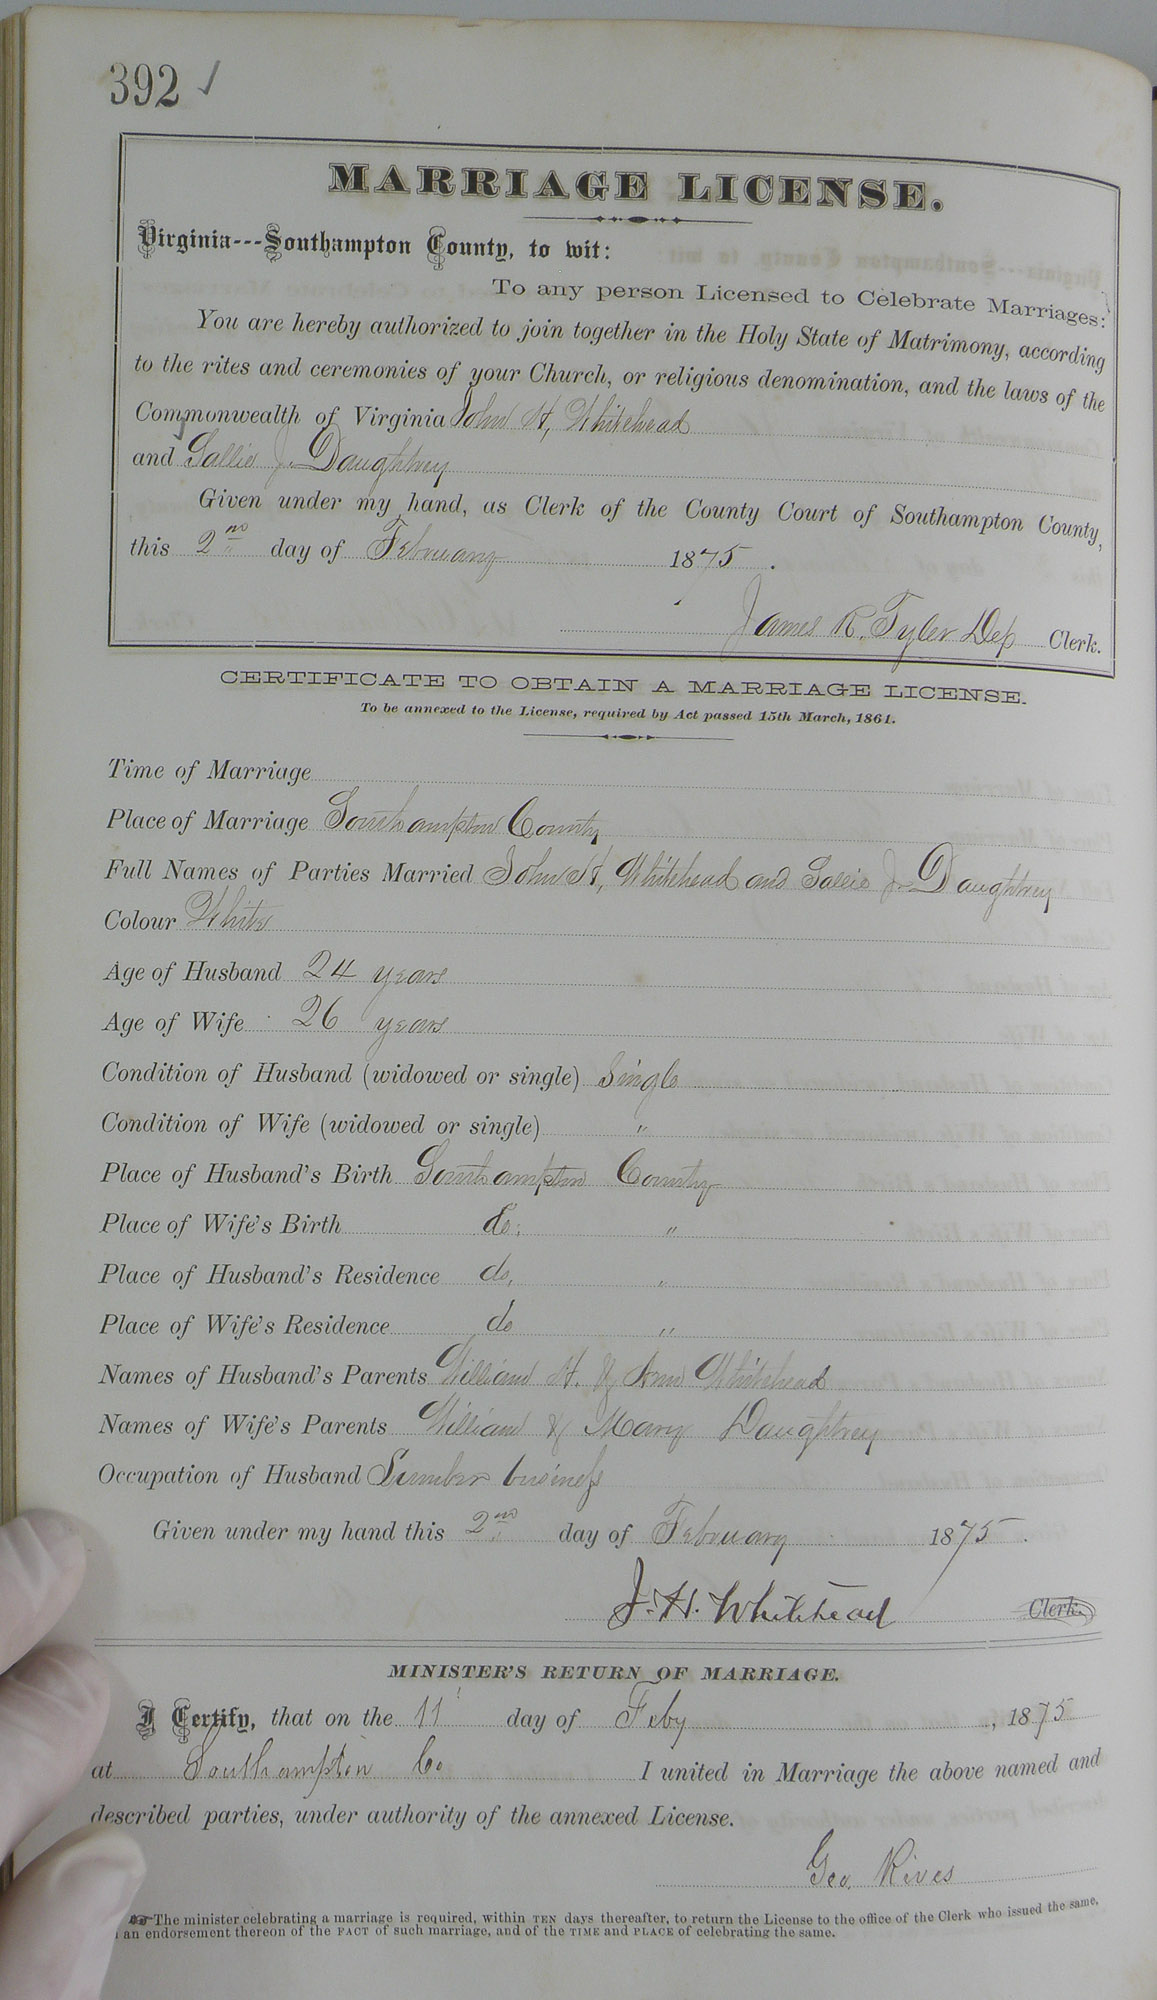 392 ✓
MARRIAGE LICENSE.
Virginia---Southampton County, to wit:
To any person Licensed to Celebrate Marriages:
You are hereby authorized to join together in the Holy State of Matrimony, according
to the rites and ceremonies of your Church, or religious denomination, and the laws of the
Commonwealth of Virginia John H, Whitehead
and Sallie J. Daughtrey
Given under my hand, as Clerk of the County Court of Southampton County,
this 2nd day of February 1875.
James R. Tyler Dep Clerk.
CERTIFICATE TO OBTAIN A MARRIAGE LICENSE.
To be annexed to the License, required by Act passed 15th March, 1861.
Time of Marriage
Place of Marriage Southampton County
Full Names of Parties Married John H, Whitehead and Sallie J. Daughtrey
Colour White
Age of Husband 24 years
Age of Wife 26 years
Condition of Husband (widowed or single) Single
Condition of Wife (widowed or single) "
Place of Husband's Birth Southampton County
Place of Wife's Birth do. "
Place of Husband's Residence do, "
Place of Wife's Residence do "
Names of Husband's Parents William H. & Ann Whitehead
Names of Wife's Parents William & Mary Daughtrey
Occupation of Husband Lumber business
Given under my hand this 2nd day of February 1875.
J. H. Whitehead Clerk.
MINISTER'S RETURN OF MARRIAGE.
I Certify, that on the 11 day of Feby, 1875
at Southampton Co I united in Marriage the above named and
described parties, under authority of the annexed License.
Geo. Rives
☞The minister celebrating a marriage is required, within TEN days thereafter, to return the License to the office of the Clerk who issued the same,
an endorsement thereon of the FACT of such marriage, and of the TIME and PLACE of celebrating the same.